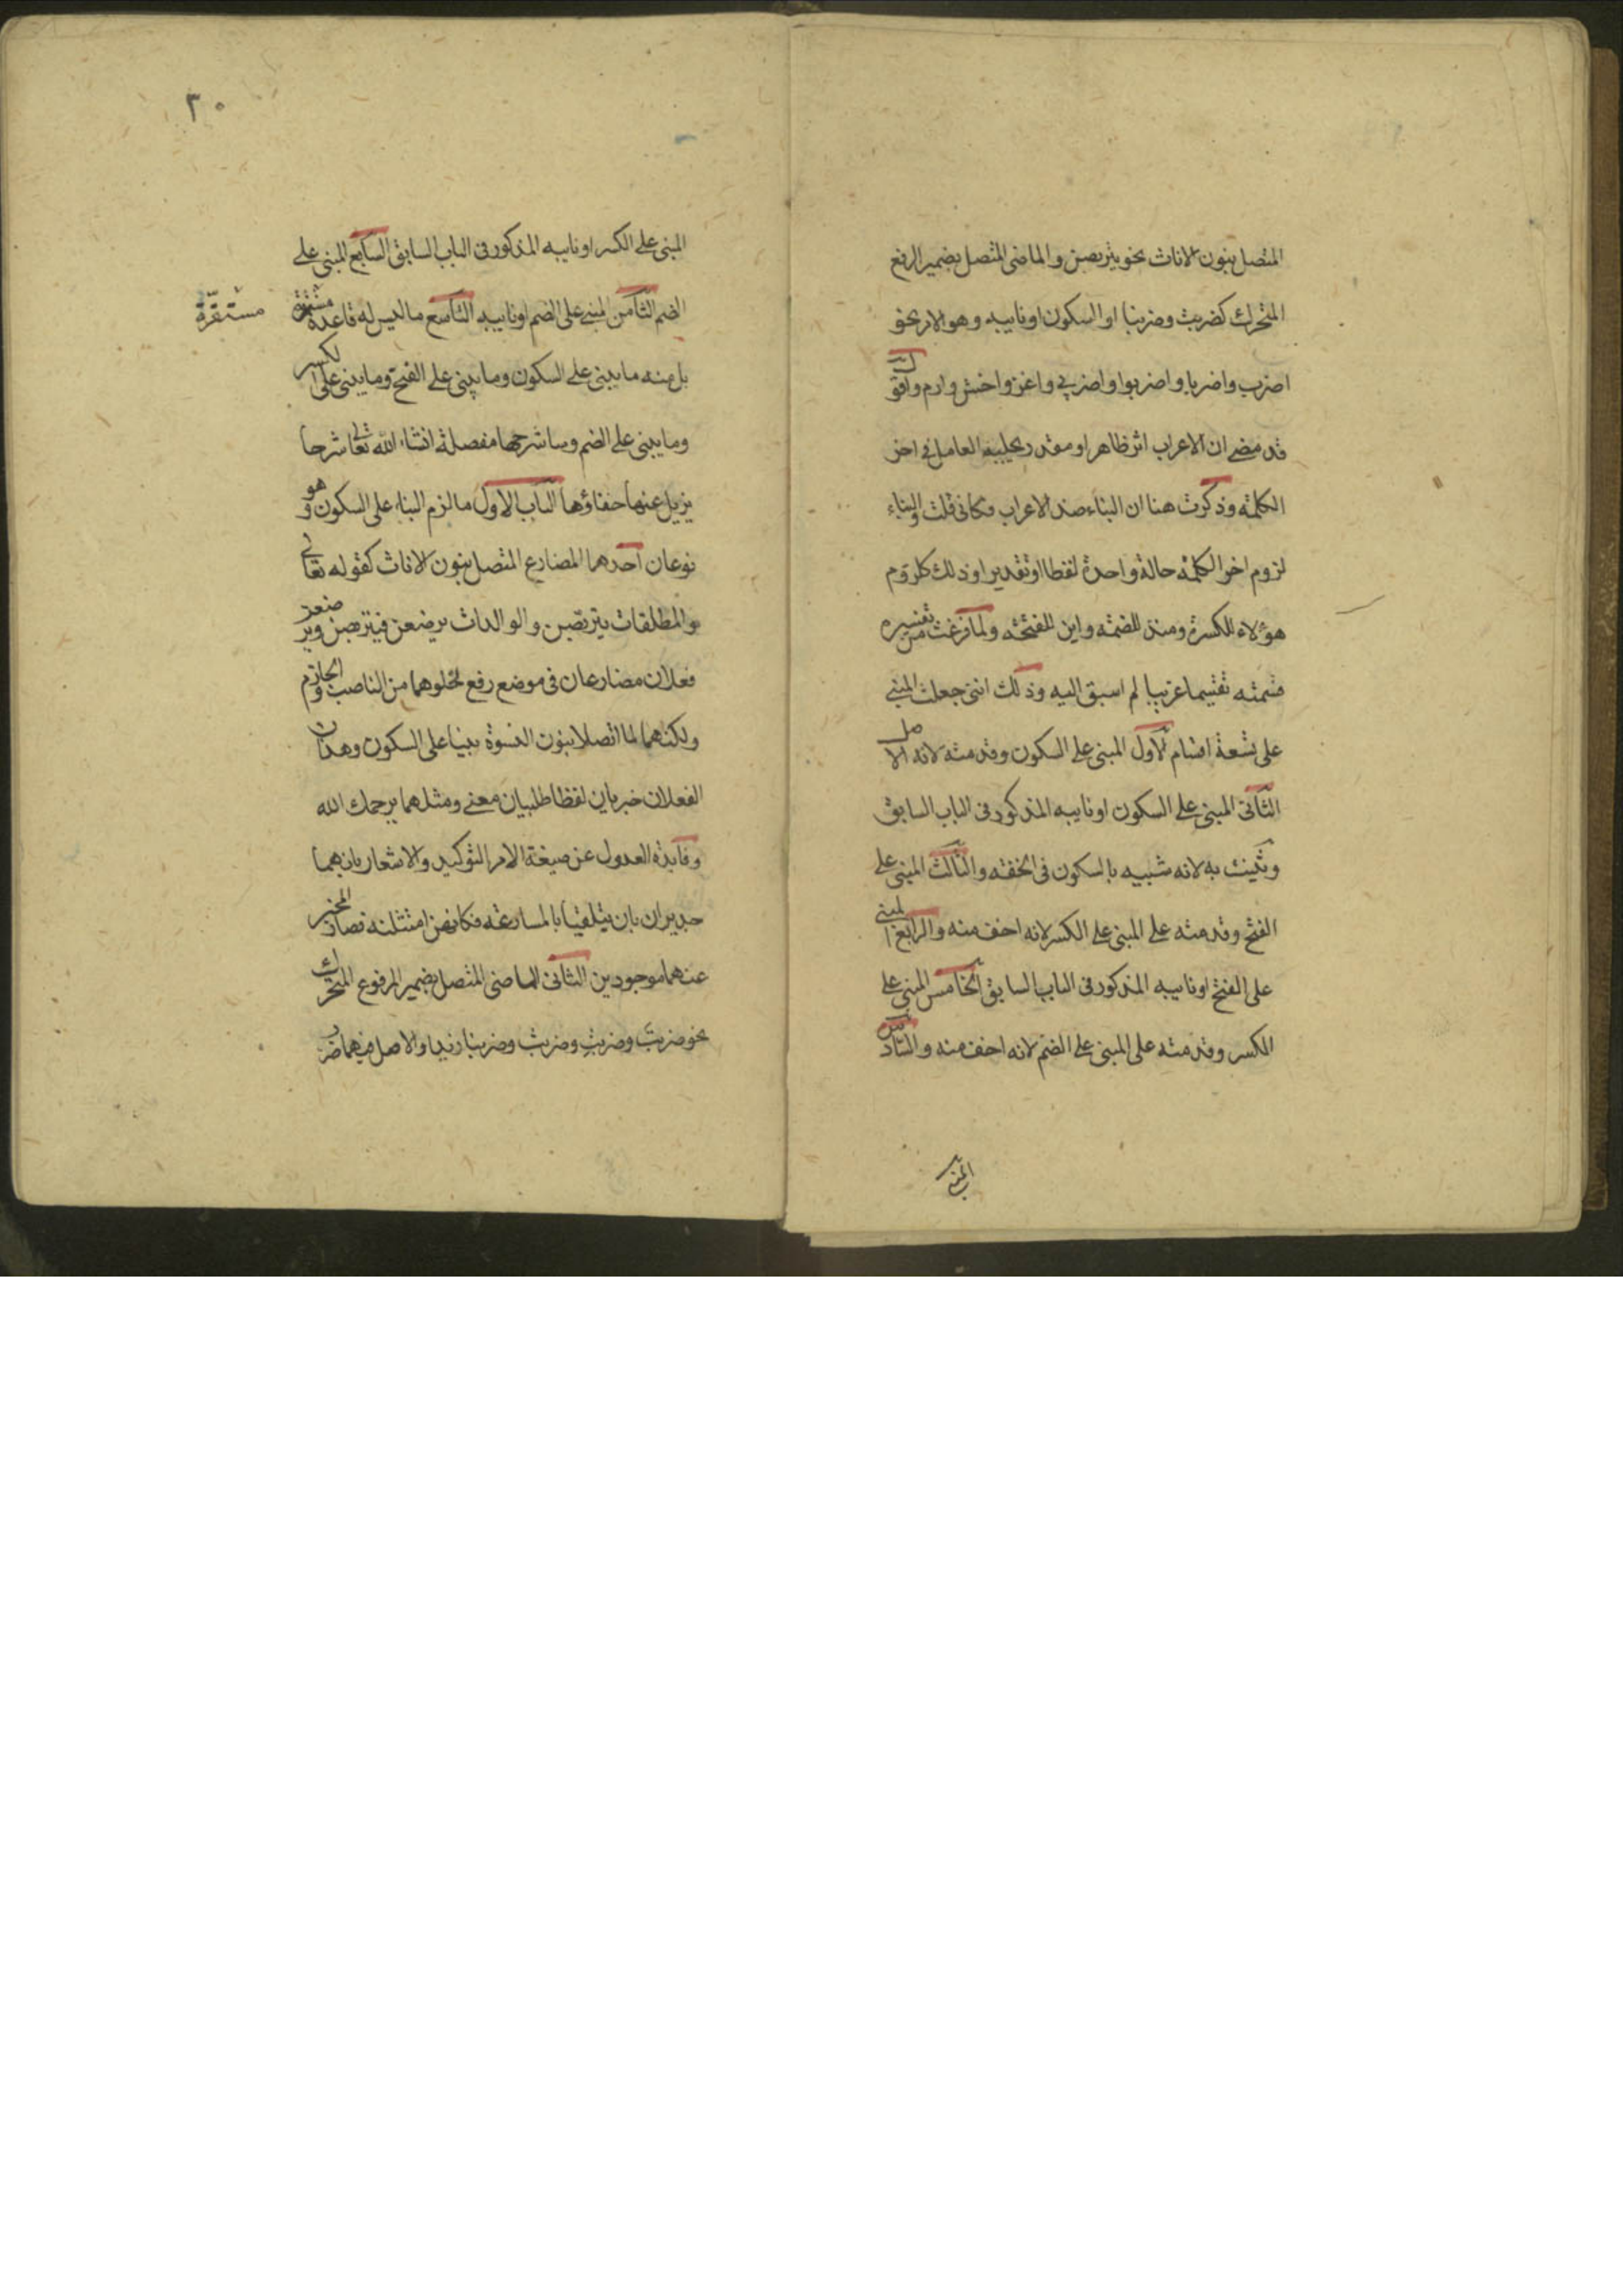 المتصل بنون الاناث نحو يتربصن والماضى المتصل بضمير الرفع
المتحرك كضربت وضربنا او السكون او نايبه وهو الامر نحو
اضرب واضربا واضربوا واضربي واغز واخش وارم واقول
قد مضى ان الاعراب اثر ظاهر او مقدر يجلبه العامل في اخر
الكلمة وذكرت هنا ان البناء ضد الاعراب فكانى قلت والبناء
لزوم اخر الكلمة حالة واحدة لفظا او تقديرا وذلك كلزوم
هؤلاء للكسرة ومنذ للضمة واين للفتحة ولما فرغت من تفسيره
قسمته تقسيما غريبا لم اسبق اليه وذلك اننى جعلت المبني
على تسعة اقسام الاول المبنى على السكون وقدمته لانه الاصل
الثانى المبنى على السكون او نايبه المذكور فى الباب السابق
وثنيت به لانه شبيه بالسكون فى الخفة والثالث المبنى على
الفتح وقدمته على المبنى على الكسر لانه اخف منه والرابع المبنى
على الفتح او نايبه المذكور فى الباب السابق الخامس المبنى على
الكسر وقدمته على المبنى على الضم لانه اخف منه والسادس
المبنى
٣٠
المبنى على الكسر او نايبه المذكور فى الباب السابق السابع المبنى على
الضم الثامن المبنى على الضم او نايبه التاسع ما ليس له قاعدة مستقرة
مستقرة
بل منه ما يبنى على السكون وما يبنى على الفتح وما يبنى على الكسر
وما يبنى على الضم وساشرحها مفصلة انشاء الله تعالى شرحا
يزيل عنها خفاؤها الباب الاول ما لزم البناء على السكون وهو
نوعان احدهما المضارع المتصل بنون الاناث كقوله تعالى
والمطلقات يتربصن والوالدات يرضعن فيتربصن ويرضعن
فعلان مضارعان فى موضع رفع لخلوهما من الناصب والجازم
ولكنهما لما اتصلا بنون النسوة بنيا على السكون وهذان
الفعلان خبريان لفظا طلبيان معنى ومثلهما يرحمك الله
وفايدة العدول عن صيغة الامر التوكيد والاشعار بانهما
جديران بان يتلقيا بالمسارعة فكانهن امتثلنه فصار المخبر
عنهما موجودين الثانى الماضى المتصل بضمير المرفوع المتحرك
نحو ضربتَ وضربتِ وضربتُ وضربنا زيدا والاصل فيهما ضرب